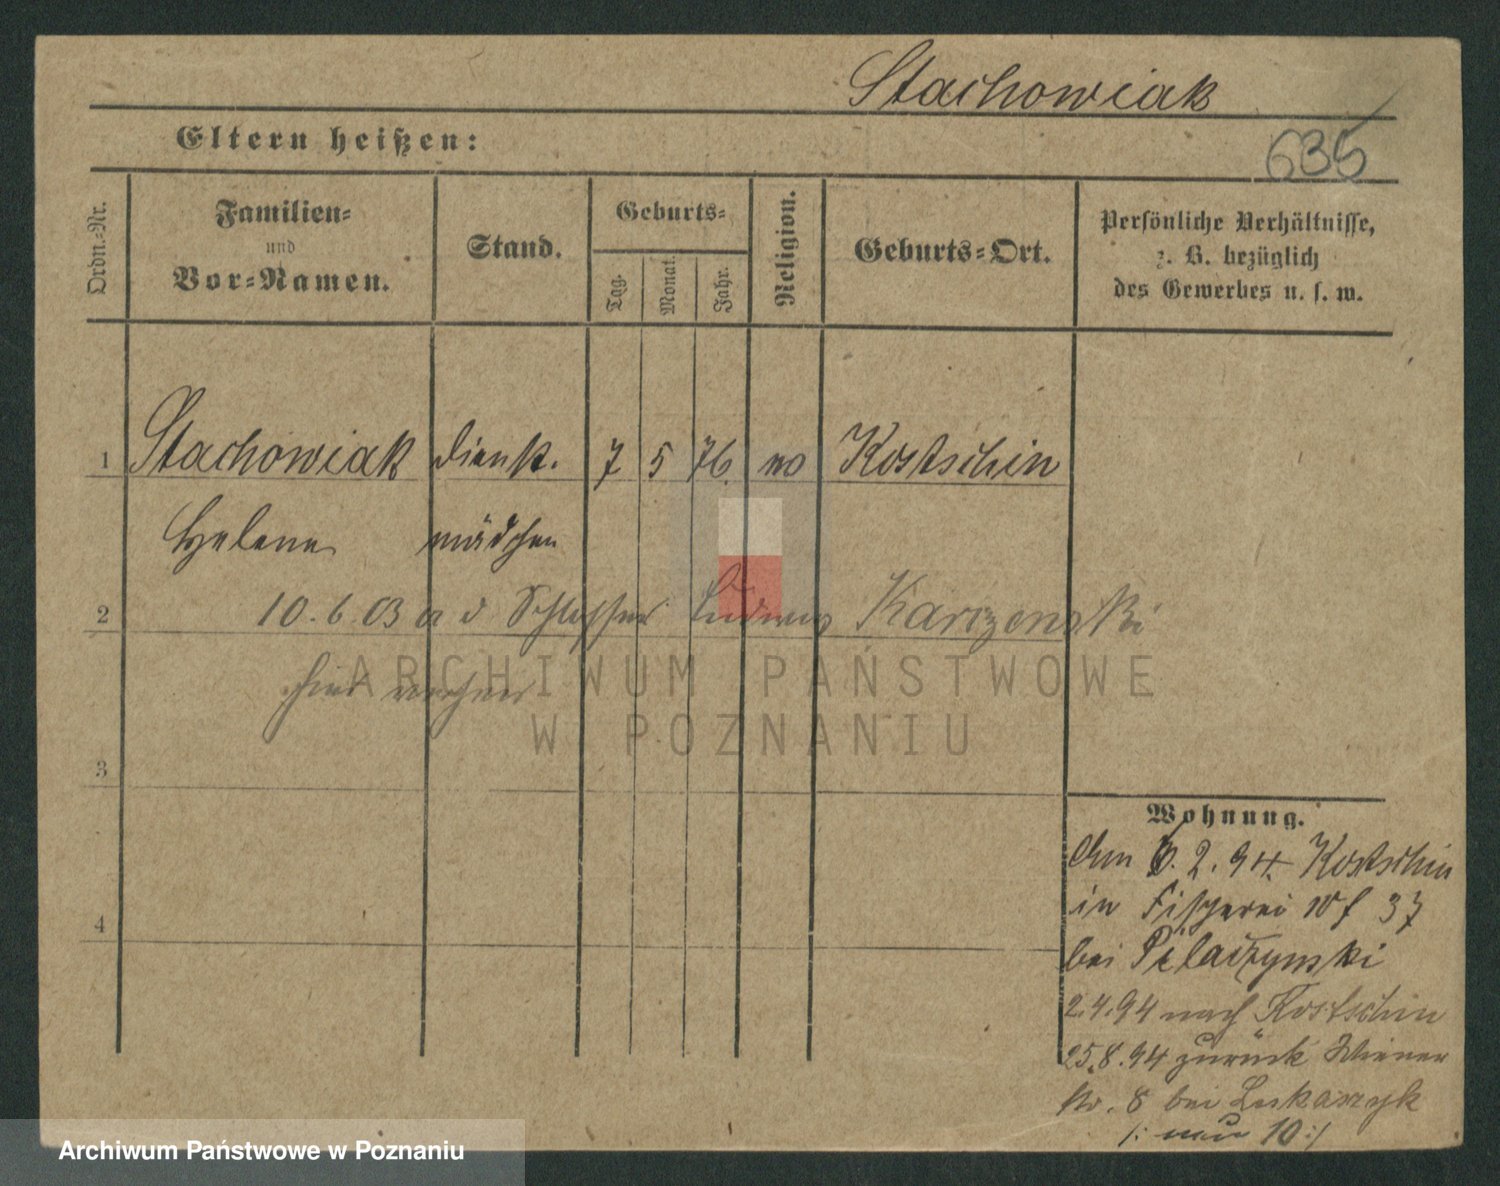 Stachowiak
Eltern heißen:
635
Ordn.-Nr.
Familien-
und
Vor-Namen.
Stand.
Geburts-
Tag.
Monat.
Jahr.
Religion.
Geburts-Ort.
Persönliche Verhältnisse,
z. B. bezüglich
des Gewerbes u. s. w.
1 Stachowiak dienst. 7 5 76. Kostschin
Helene mädchen
2 10.6.03 a d Schlosser Ludwig
hier
3
4
Wohnung.
2.94. Kostschin
in Fischerei 37
bei Pilaczynski
2.4.94 nach Kostschin
25.8.94 zurück Wiener
8 bei Lukaszyk
10:/
ARCHIWUM PAŃSTWOWE
W POZNANIU
Archiwum Państwowe w Poznaniu